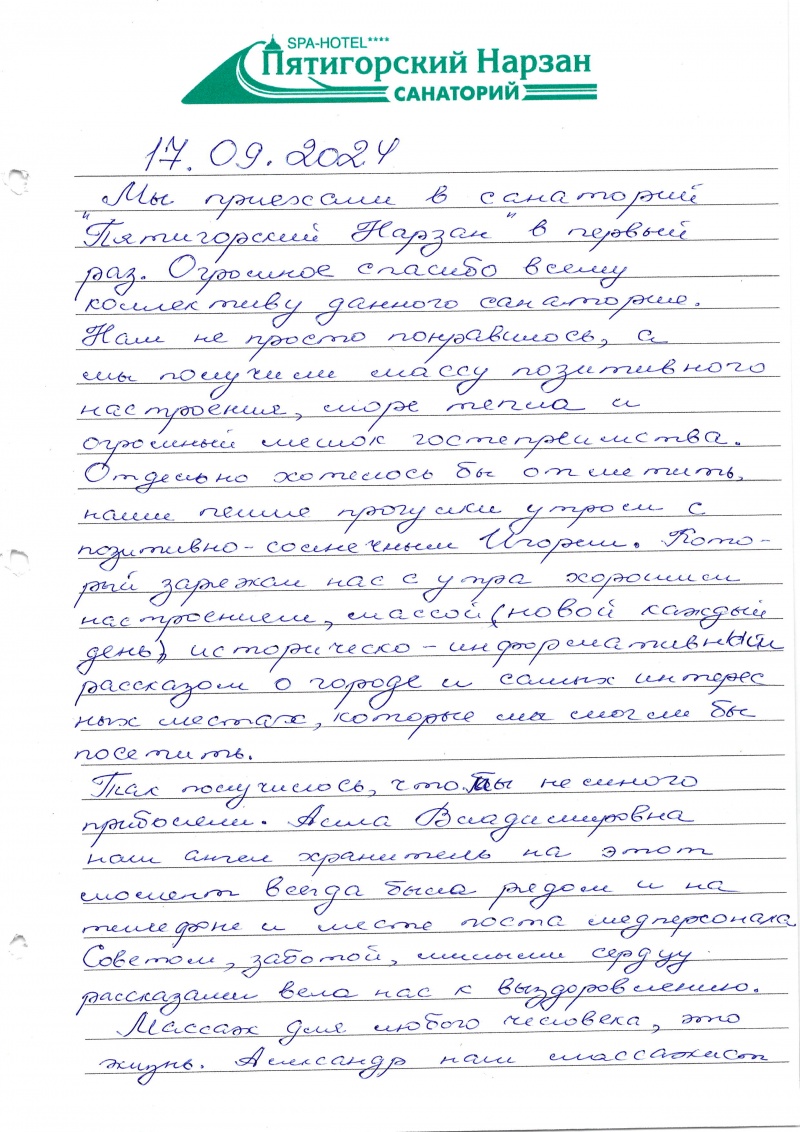 SPA-HOTEL****
Пятигорский Нарзан
САНАТОРИЙ
17.09.2024
Мы приехали в санаторий
"Пятигорский Нарзан" в первый
раз. Огромное спасибо всему
коллективу данного санатория.
Нам не просто понравилось, а
мы получили массу позитивного
настроения, море тепла и
огромный мешок гостепреимства.
Отдельно хотелось бы отметить,
наши пешие прогулки утром с
позитивно-солнечным Игорем. Кото-
рый заряжал нас с утра хорошим
настроением, массой (новой каждый
день), историческо-информативным
рассказом о городе и самых интерес
ных местах, которые мы могли бы
посетить.
Так получилось, что мы немного
приболели. Алла Владимировна
наш ангел хранитель на этот
момент всегда была рядом и на
телефоне и месте поста медперсонала
Советом, заботой, милыми сердцу
рассказами вела нас к выздоровлению.
Массаж для любого человека, это
жизнь. Александр наш массажист